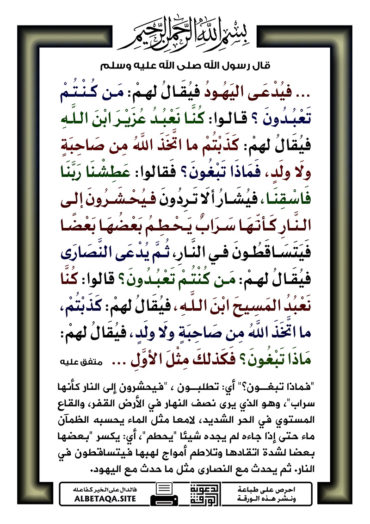 بسم الله الرحمن الرحيم
قال رسول الله صلى الله عليه وسلم
... فَيُدْعَى اليَهُودُ فَيُقَالُ لهمْ: مَن كُنْتُمْ
تَعْبُدُونَ؟ قالوا: كُنَّا نَعْبُدُ عُزَيْرَ ابْنَ اللَّهِ
فيُقَالُ لهمْ: كَذَبْتُمْ ما اتَّخَذَ اللَّهُ مِن صَاحِبَةٍ
ولَا ولَدٍ، فَمَاذَا تَبْغُونَ؟ فَقالوا: عَطِشْنَا رَبَّنَا
فَاسْقِنَا، فيُشَارُ ألَا تَرِدُونَ فيُحْشَرُونَ إلى
النَّارِ كَأنَّهَا سَرَابٌ يَحْطِمُ بَعْضُهَا بَعْضًا
فَيَتَسَاقَطُونَ في النَّارِ، ثُمَّ يُدْعَى النَّصَارَى
فيُقَالُ لهمْ: مَن كُنْتُمْ تَعْبُدُونَ؟ قالوا: كُنَّا
نَعْبُدُ المَسِيحَ ابْنَ اللَّهِ، فيُقَالُ لهمْ: كَذَبْتُمْ،
ما اتَّخَذَ اللَّهُ مِن صَاحِبَةٍ ولَا ولَدٍ، فيُقَالُ لهمْ:
مَاذَا تَبْغُونَ؟ فَكَذلكَ مِثْلَ الأوَّلِ ... متفق عليه
"فماذا تبغــون؟" أي: تطلبــون ، "فيحشرون إلى النار كأنها
سراب"، وهو الذي يرى نصف النهار في الأرض القفر، والقاع
المستوي في الحر الشديد، لامعا مثل الماء يحسبه الظمآن
ماء حتى إذا جاءه لم يجده شيئا "يحطم"، أي: يكسر "بعضها
بعضا لشدة اتقادها وتلاطم أمواج لهبها فيتساقطون في
النار. ثم يحدث مع النصارى مثل ما حدث مع اليهود.
احرص على طباعة
ونشر هذه الورقة
الدعوية
الورقة
فالدال على الخير كفاعله
ALBETAQA.SITE